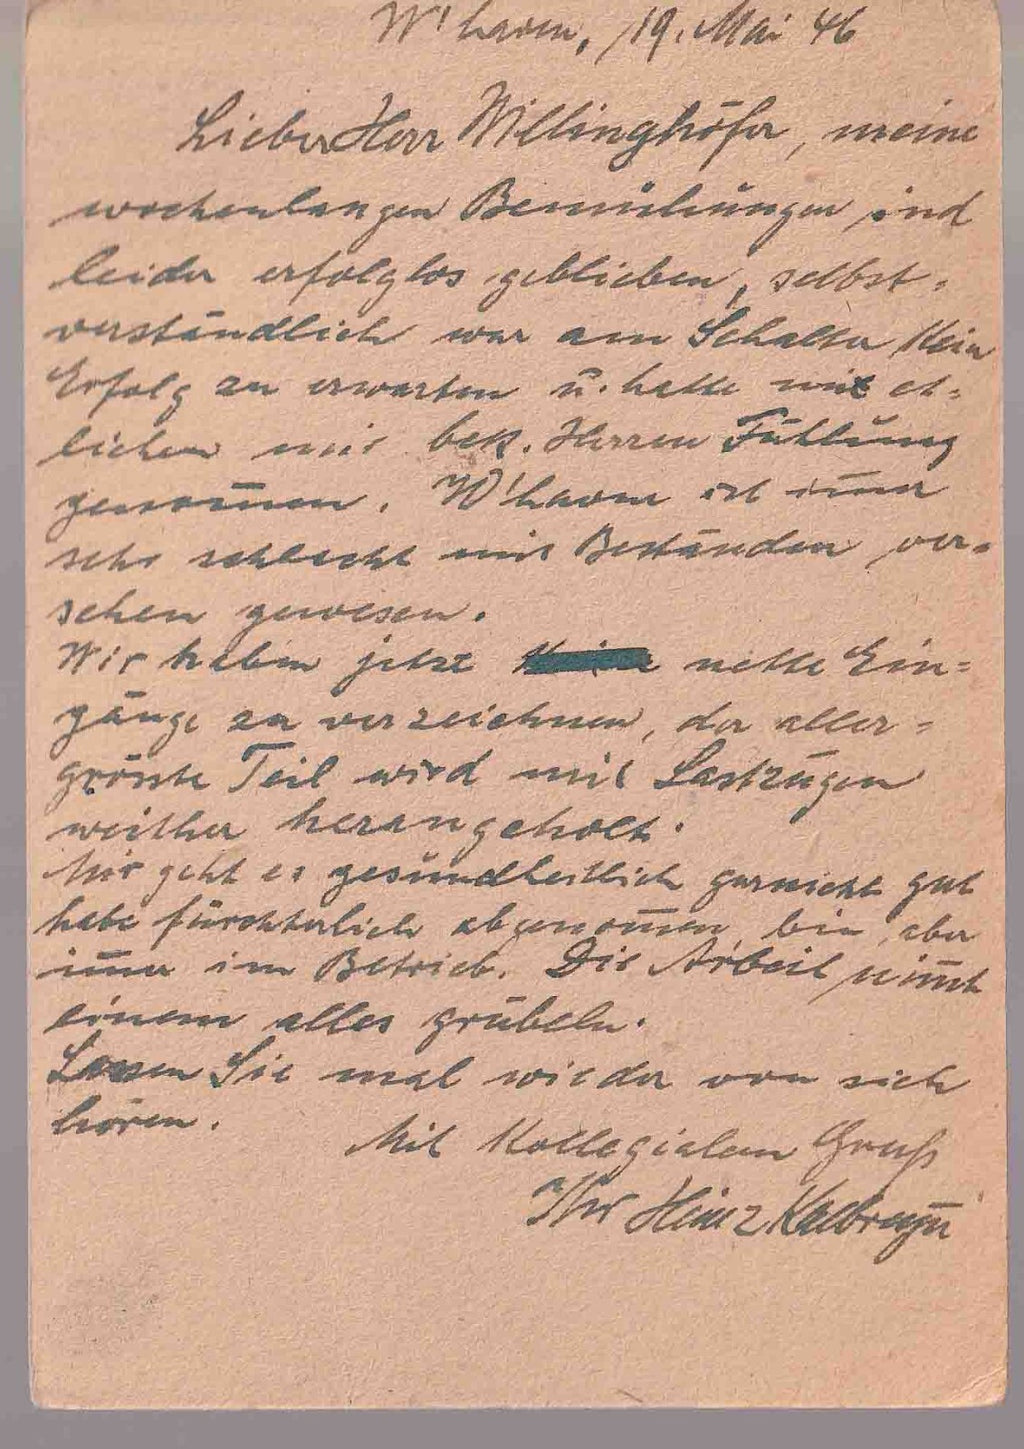 W'haven, 19. Mai 46
Lieber Herr Willinghöfer, meine
wochenlangen Bemühungen sind
leider erfolglos geblieben, selbst-
verständlich war am Schalter kein
Erfolg zu erwarten u. hatte mit et-
lichen mir bek. Herren Fühlung
genom̄en. W'haven ist im̄er
sehr schlecht mit Beständen ver-
sehen gewesen.
Wir haben jetzt nette Ein-
gänge zu verzeichnen, der aller-
grösste Teil wird mit Lastzügen
weither herangeholt.
Mir geht es gesundheitlich garnicht gut
habe fürchterlich abgenom̄en bin aber
im̄er im Betrieb. Die Arbeit nim̄t
einem alles grübeln.
Lassen Sie mal wieder von sich
hören.
Mit Kollegialem Gruß
Ihr Heinz